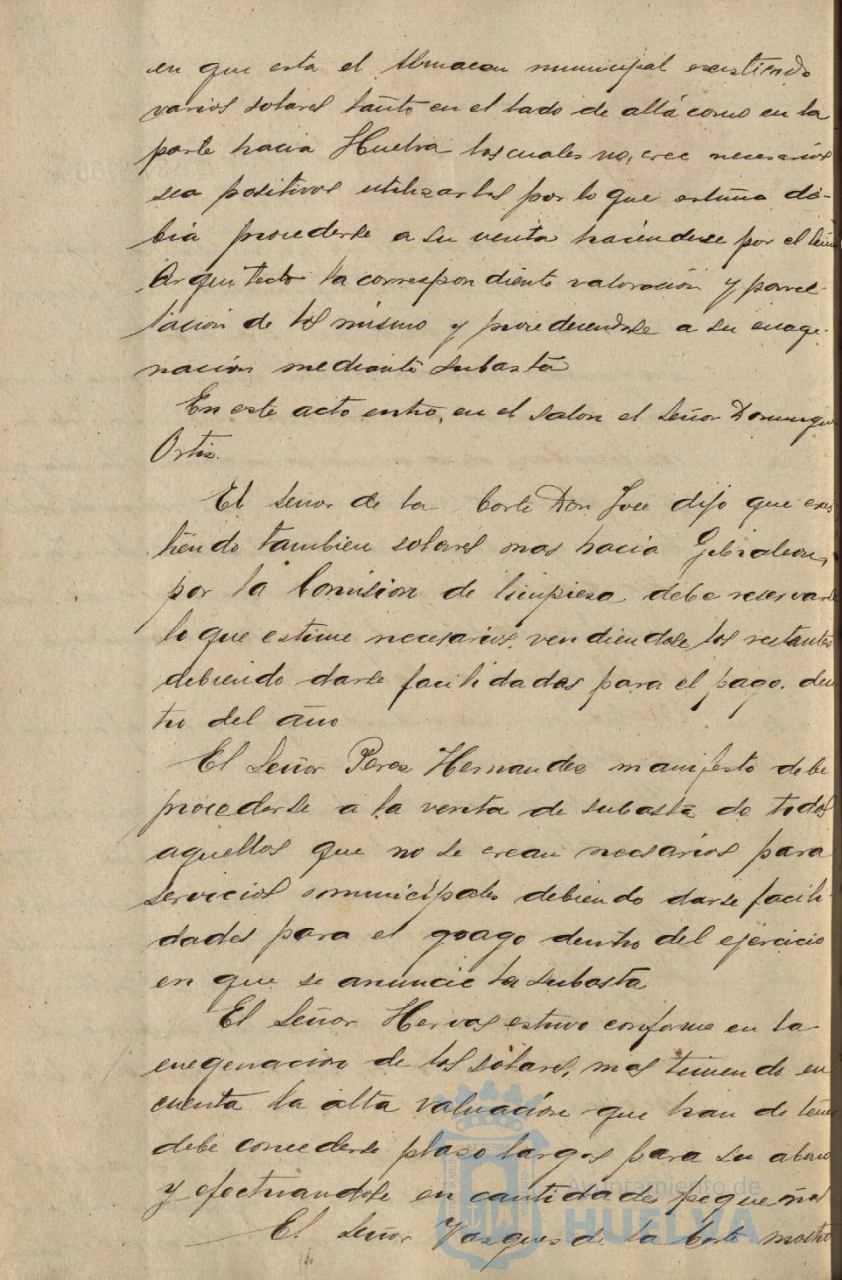 en que esta el Almacen municipal existiendo
varios solares tanto en el lado de allá como en la
parte hacia Huelva los cuales no, cree necesarios
sea positivos utilizarlos por lo que estima de-
bia procederse a su venta haciendose por el Señor
Arquitecto la correspondiente valoración y parce-
lacion de los mismo y procediendose a su enage-
nación mediante subasta
En este acto entro, en el salon el Señor Dominguez
Ortiz.
El señor de la Corte Don Jose dijo que exis
tiendo tambien solares mas hacia Gibraleon,
por la Comision de limpieza debe reservarse
lo que estime necesarios, vendiendose los restantes
debiendo darse facilidades para el pago. den
tro del año
El Señor Perez Hernandez manifesto debe
procederse a la venta de subasta de todos
aquellos que no se crean necesarios para
servicios municipales debiendo darse facili-
dades para el pago dentro del ejercicio
en que se anuncie la subasta
El Señor Hervas estuvo conforme en la
enegenacion de los solares, mas teniendo en
cuenta la alta valuación que han de tener
debe concederse plazo largos para su abono
y efectuandose en cantidades pequeñas
El Señor Vazquez de la Corte mostro
Ayuntamiento de
HUELVA